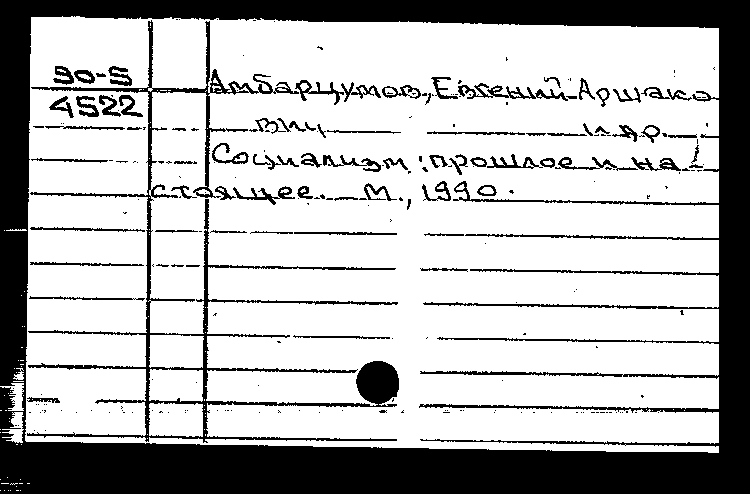 90-5
4522
Амбарцумов, Евгений Аршако
вич и др.
Социализм: прошлое и на
стоящее. М., 1990.